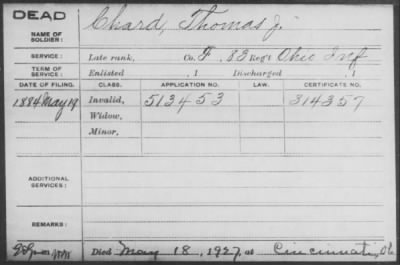 DEAD
NAME OF SOLDIER: Chard, Thomas J.
SERVICE: Late rank, Co. F, 83 Reg't Ohio Inf
TERM OF SERVICE: Enlisted , 1 Discharged , 1
DATE OF FILING. CLASS. APPLICATION NO. LAW. CERTIFICATE NO.
1884 May 19 Invalid, 513453 314357
Widow,
Minor,
ADDITIONAL SERVICES:
REMARKS:
Died May 18, 1927, at Cincinnati, O.